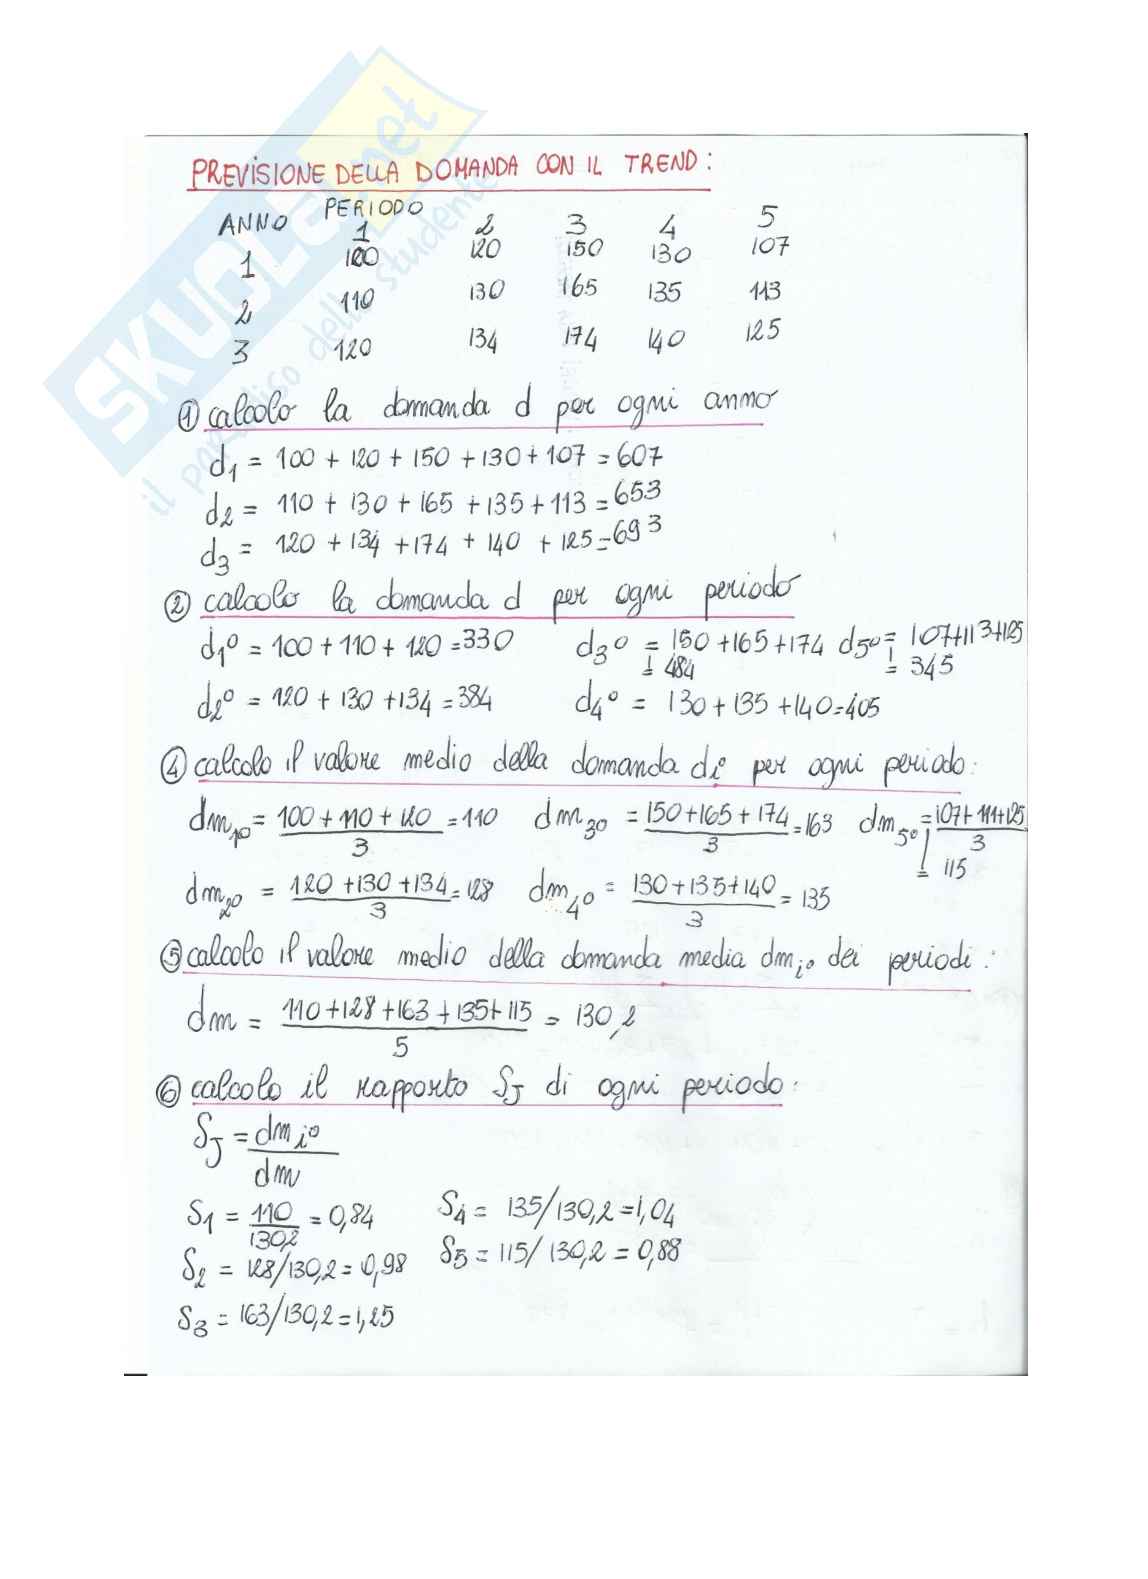 SKUOLA.net
il paradiso dello studente
PREVISIONE DELLA DOMANDA CON IL TREND:
ANNO PERIODO
1 2 3 4 5
1 100 120 150 130 107
2 110 130 165 135 113
3 120 134 174 140 125
① calcolo la domanda d per ogni anno
d1 = 100 + 120 + 150 + 130 + 107 = 607
d2 = 110 + 130 + 165 + 135 + 113 = 653
d3 = 120 + 134 + 174 + 140 + 125 = 693
② calcolo la domanda d per ogni periodo
d1° = 100 + 110 + 120 = 330 d3° = 150 + 165 + 174 d5° = 107+113+125
= 484 = 345
d2° = 120 + 130 + 134 = 384 d4° = 130 + 135 + 140 = 405
④ calcolo il valore medio della domanda di° per ogni periodo:
dm1° = 100 + 110 + 120 / 3 = 110 dm3° = 150+165+174 / 3 = 163 dm5° = 107+111+125 / 3
= 115
dm2° = 120 + 130 + 134 / 3 = 128 dm4° = 130+135+140 / 3 = 135
⑤ calcolo il valore medio della domanda media dmi° dei periodi:
dm = 110+128+163+135+115 / 5 = 130,2
⑥ calcolo il rapporto SJ di ogni periodo:
SJ = dmi° / dm
S1 = 110 / 130,2 = 0,84 S4 = 135/130,2 = 1,04
S2 = 128/130,2 = 0,98 S5 = 115/130,2 = 0,88
S3 = 163/130,2 = 1,25